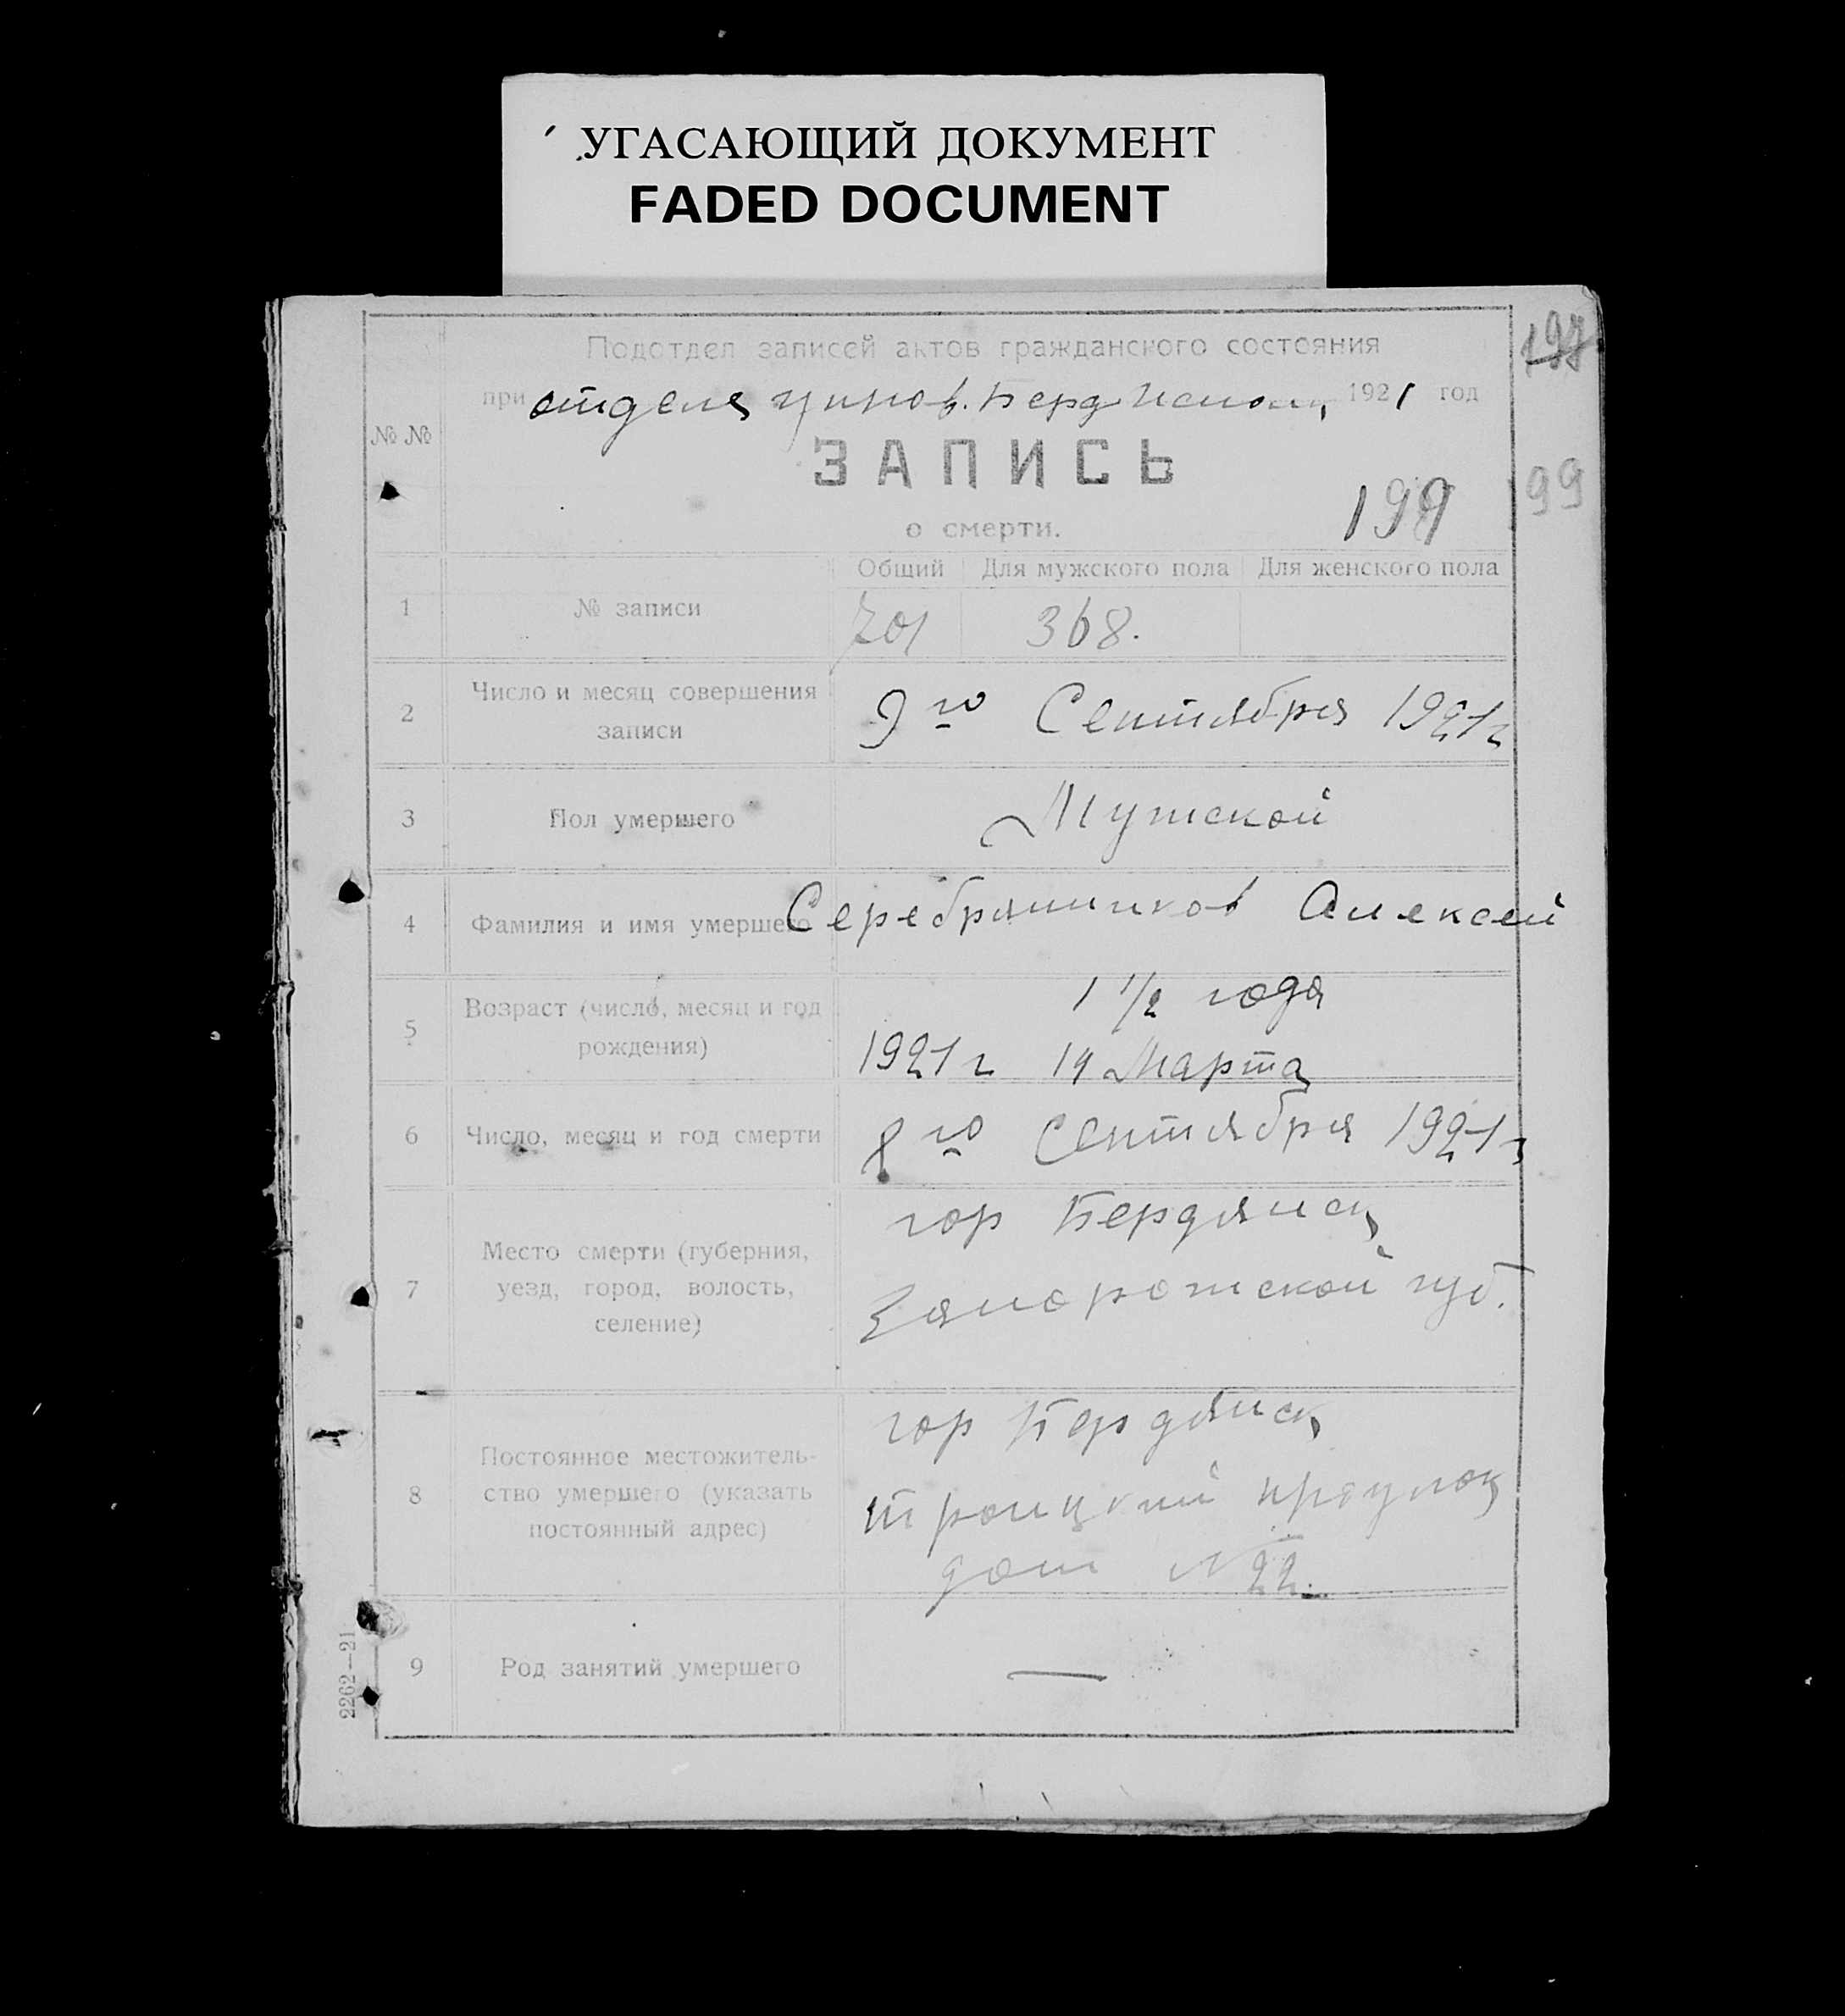 УГАСАЮЩИЙ ДОКУМЕНТ
FADED DOCUMENT
Подотдел записей актов гражданского состояния
197
при отдела управ. Берд 1921 год
№ №
ЗАПИСЬ
199
99
о смерти.
Общий Для мужского пола Для женского пола
1 № записи 701 368.
2 Число и месяц совершения
записи
9го Сентября 1921г
3 Пол умершего Мужской
4 Фамилия и имя умершего Серебрянников Алексей
5 Возраст (число, месяц и год
рождения)
1 1/2 года
1921 г 14 Марта
6 Число, месяц и год смерти 8го Сентября 1921г
7 Место смерти (губерния,
уезд, город, волость,
селение)
гор Бердянск
Запорожской губ.
8 Постоянное местожитель-
ство умершего (указать
постоянный адрес)
гор Бердянск
Троицкий
дом № 22.
9 Род занятий умершего —
2262—21